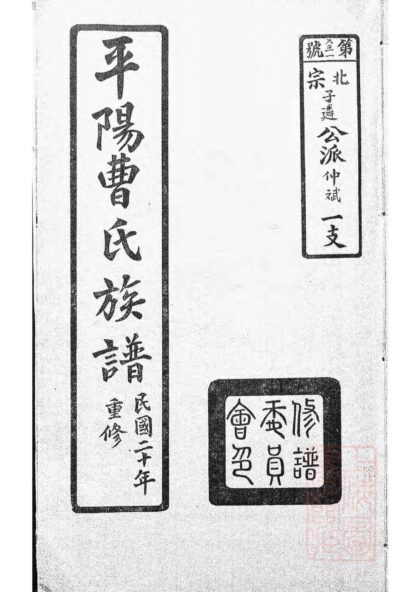 第六三一號
北宗子遴公派仲斌一支
平陽曹氏族譜
民國二十年
重修
修譜
委員
會印